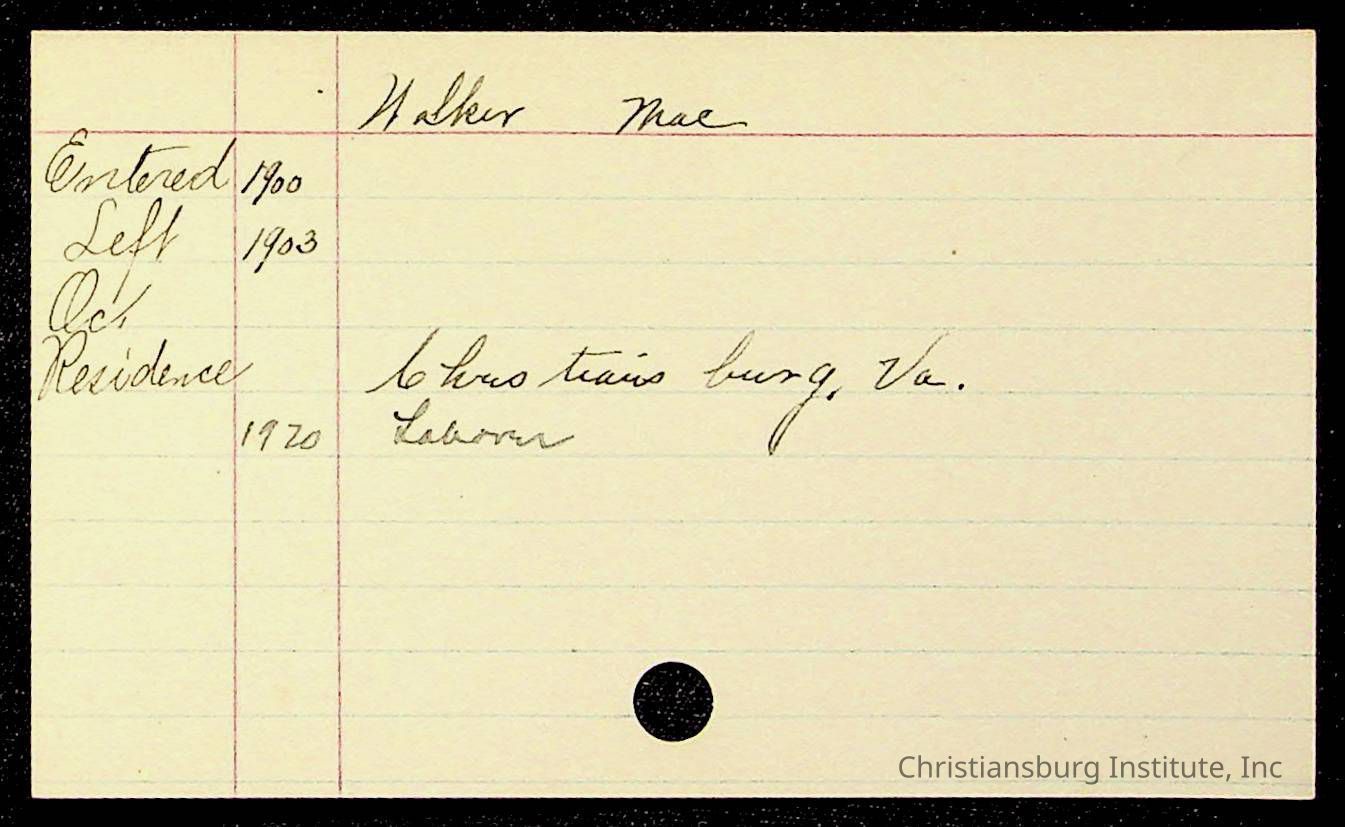 Walker Mae
Entered 1900
Left 1903
Oc.
Residence Christiansburg, Va.
1920 Laborer
Christiansburg Institute, Inc